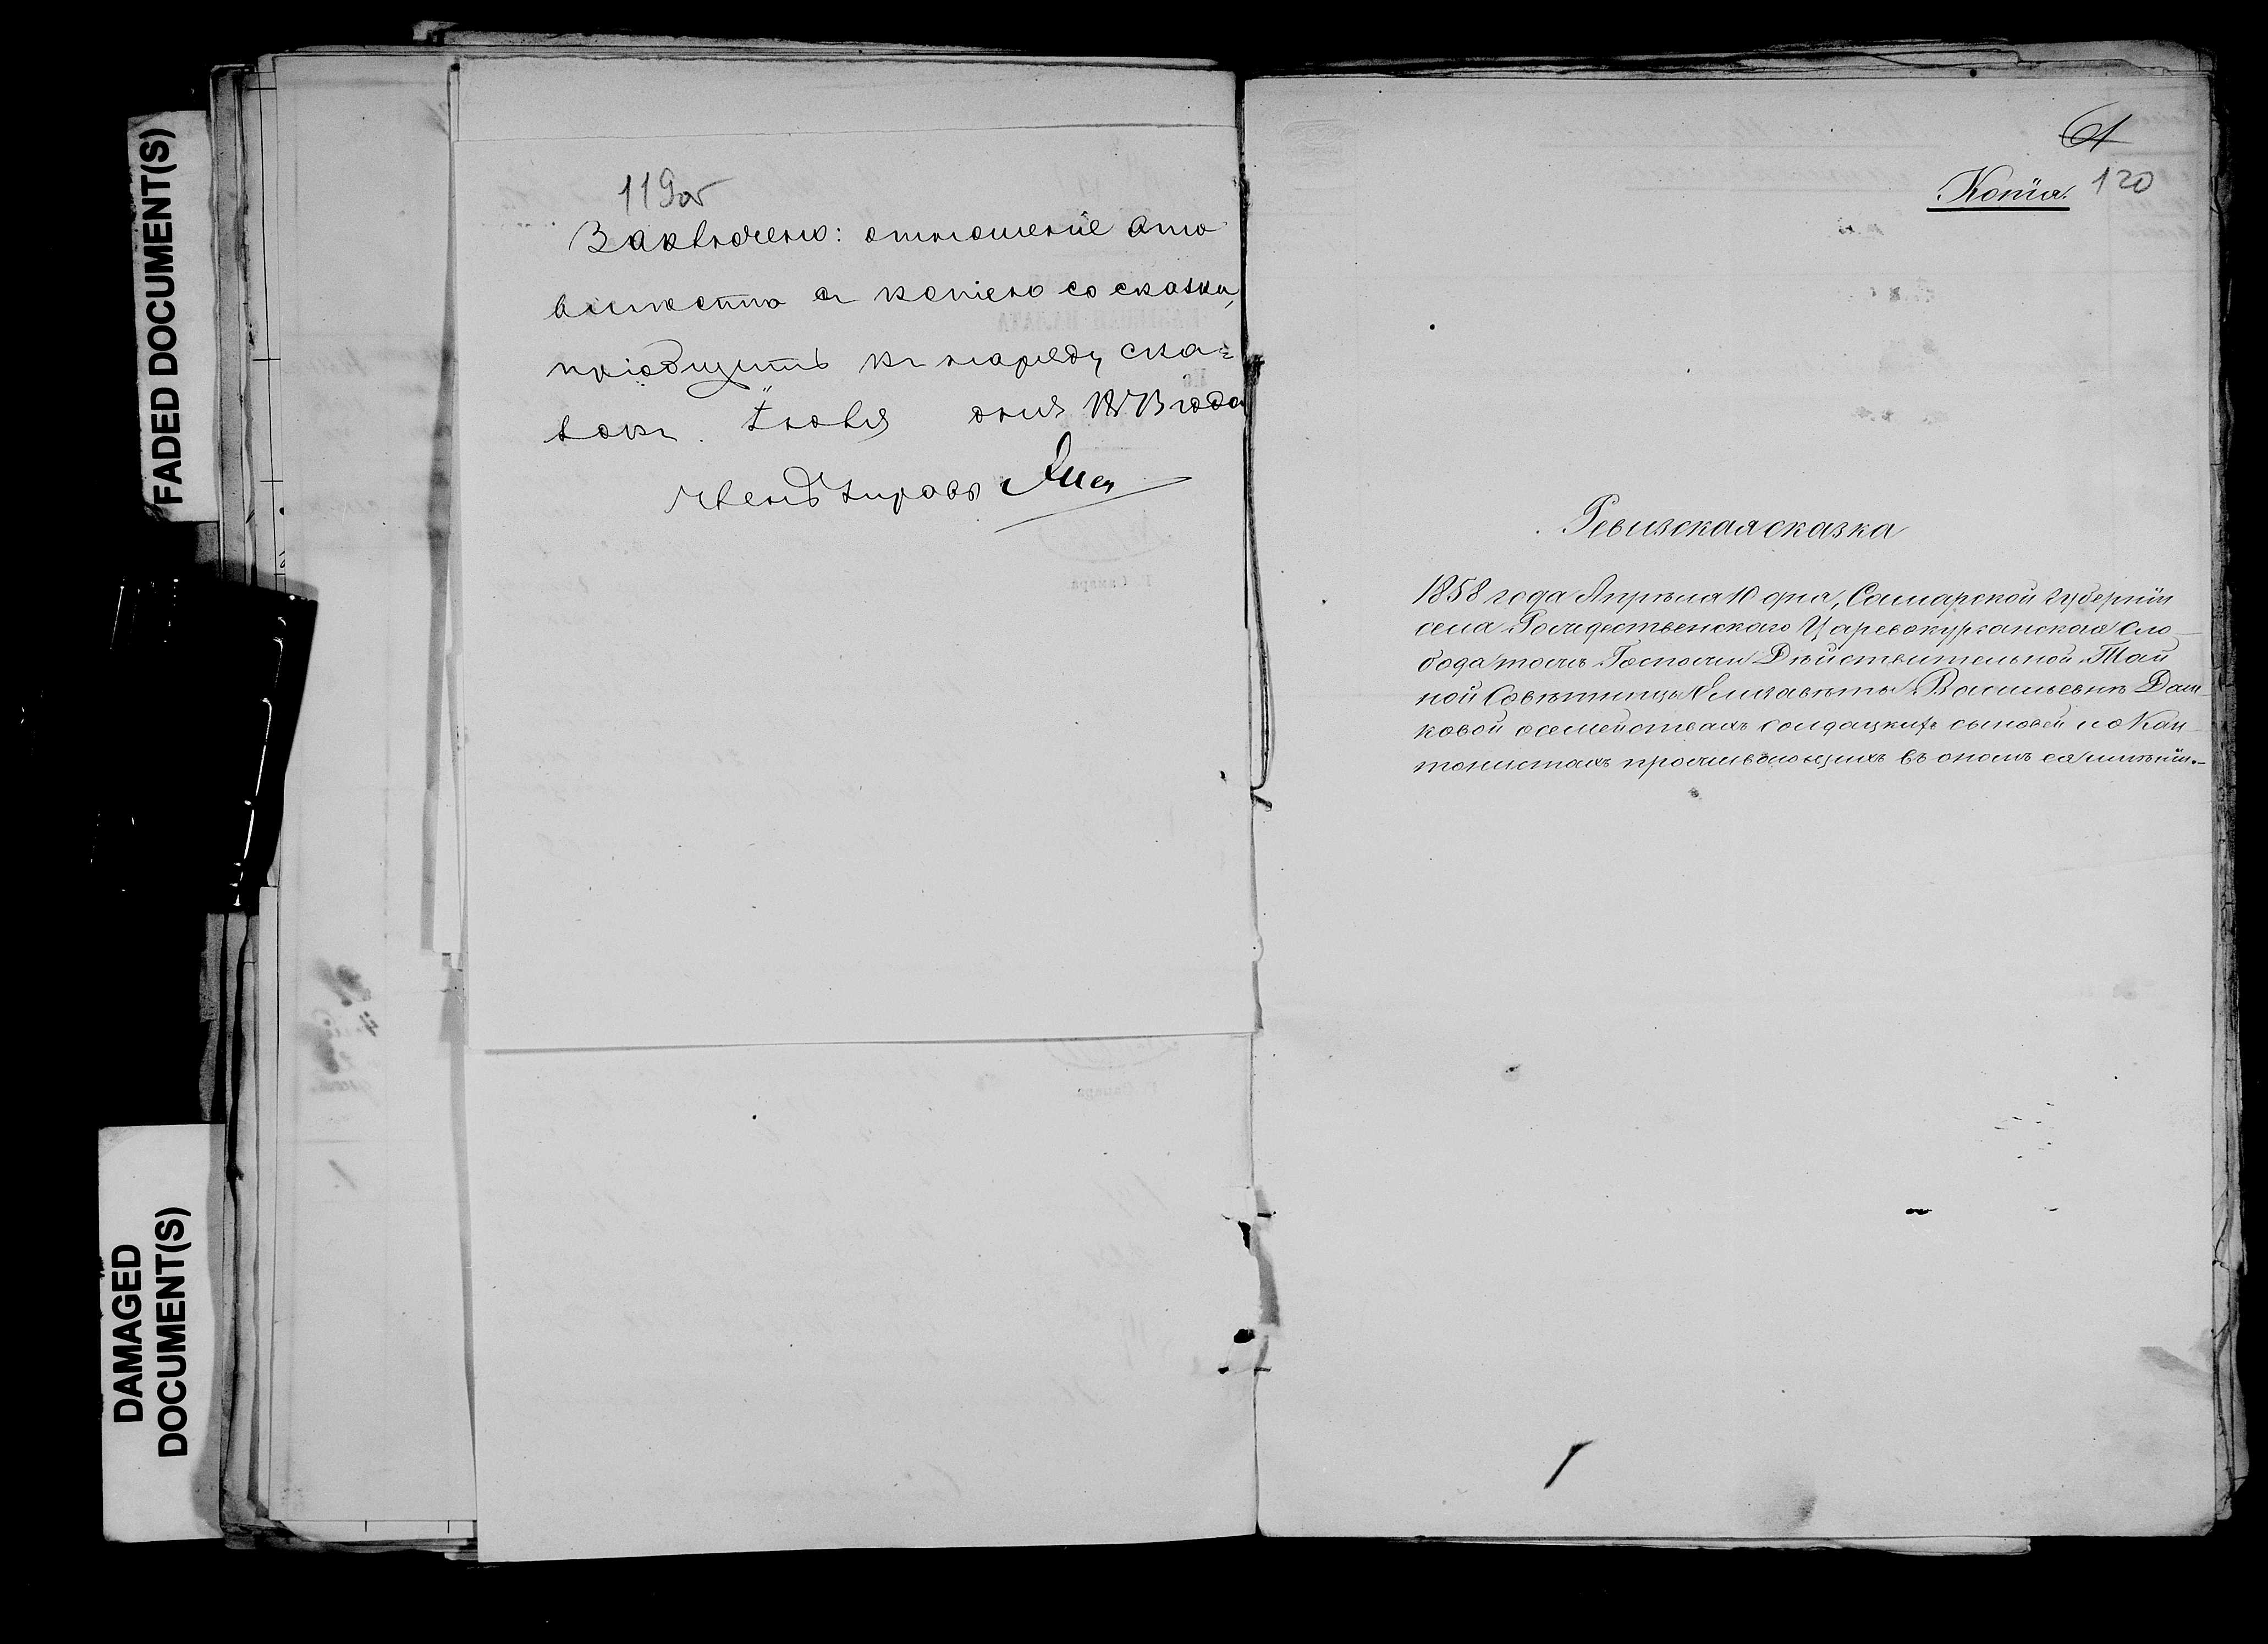 FADED DOCUMENT(S)
DAMAGED
DOCUMENT(S)
119об
Заключено: отношеніе это
вместо съ копіею со сказки,
пріобщить къ наряду ска=
зокъ. Іюля дня 1873 года
Членъ Управы
61
120
Копія.
Ревизская сказка
1858 года Апрѣля 10 дня, Самарской губерніи
села Рождественскаго Царевокурганская Сло-
бода тожъ Госпожи Дѣйствительной Тай
ной Совѣтницы Елизаветы Васильевнѣ Даш-
ковой о семействахъ солдацкихъ сыновей и о Кан-
тонистахъ проживающихъ въ ономъ ея имѣніи.-